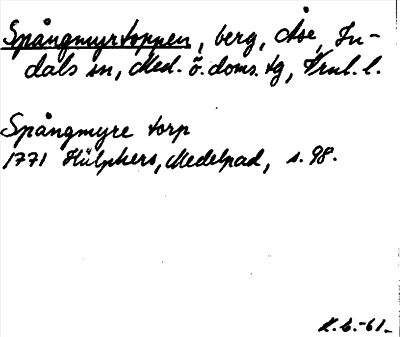 Spångmyrtoppen, berg, Åse, In-
dals sn, Med. ö. doms. tg, Vrnl. l.
Spångmyre torp
1771 Hülphers, Medelpad, s. 98.
K.G.-61.